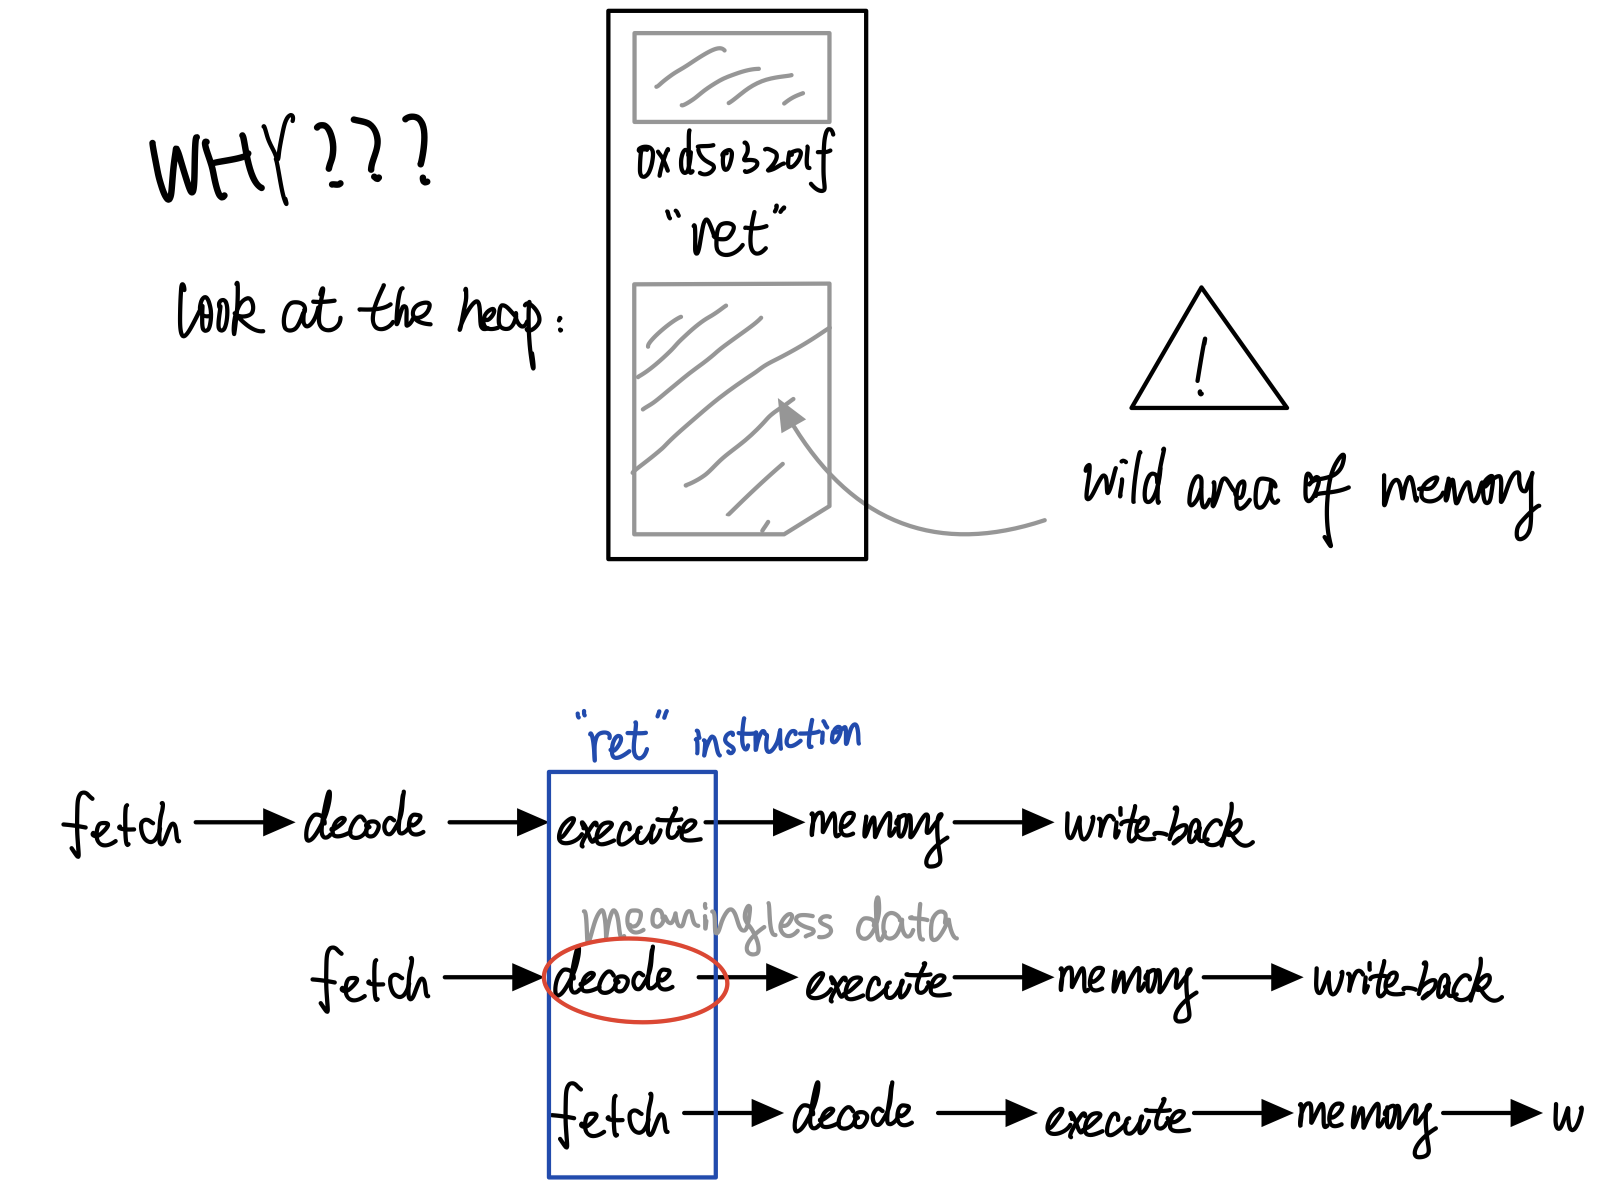 WHY???
0xd503201f
"ret"
look at the heap:
!
wild area of memory
"ret" instruction
fetch decode execute memory write-back
meaningless data
fetch decode execute memory write-back
fetch decode execute memory w